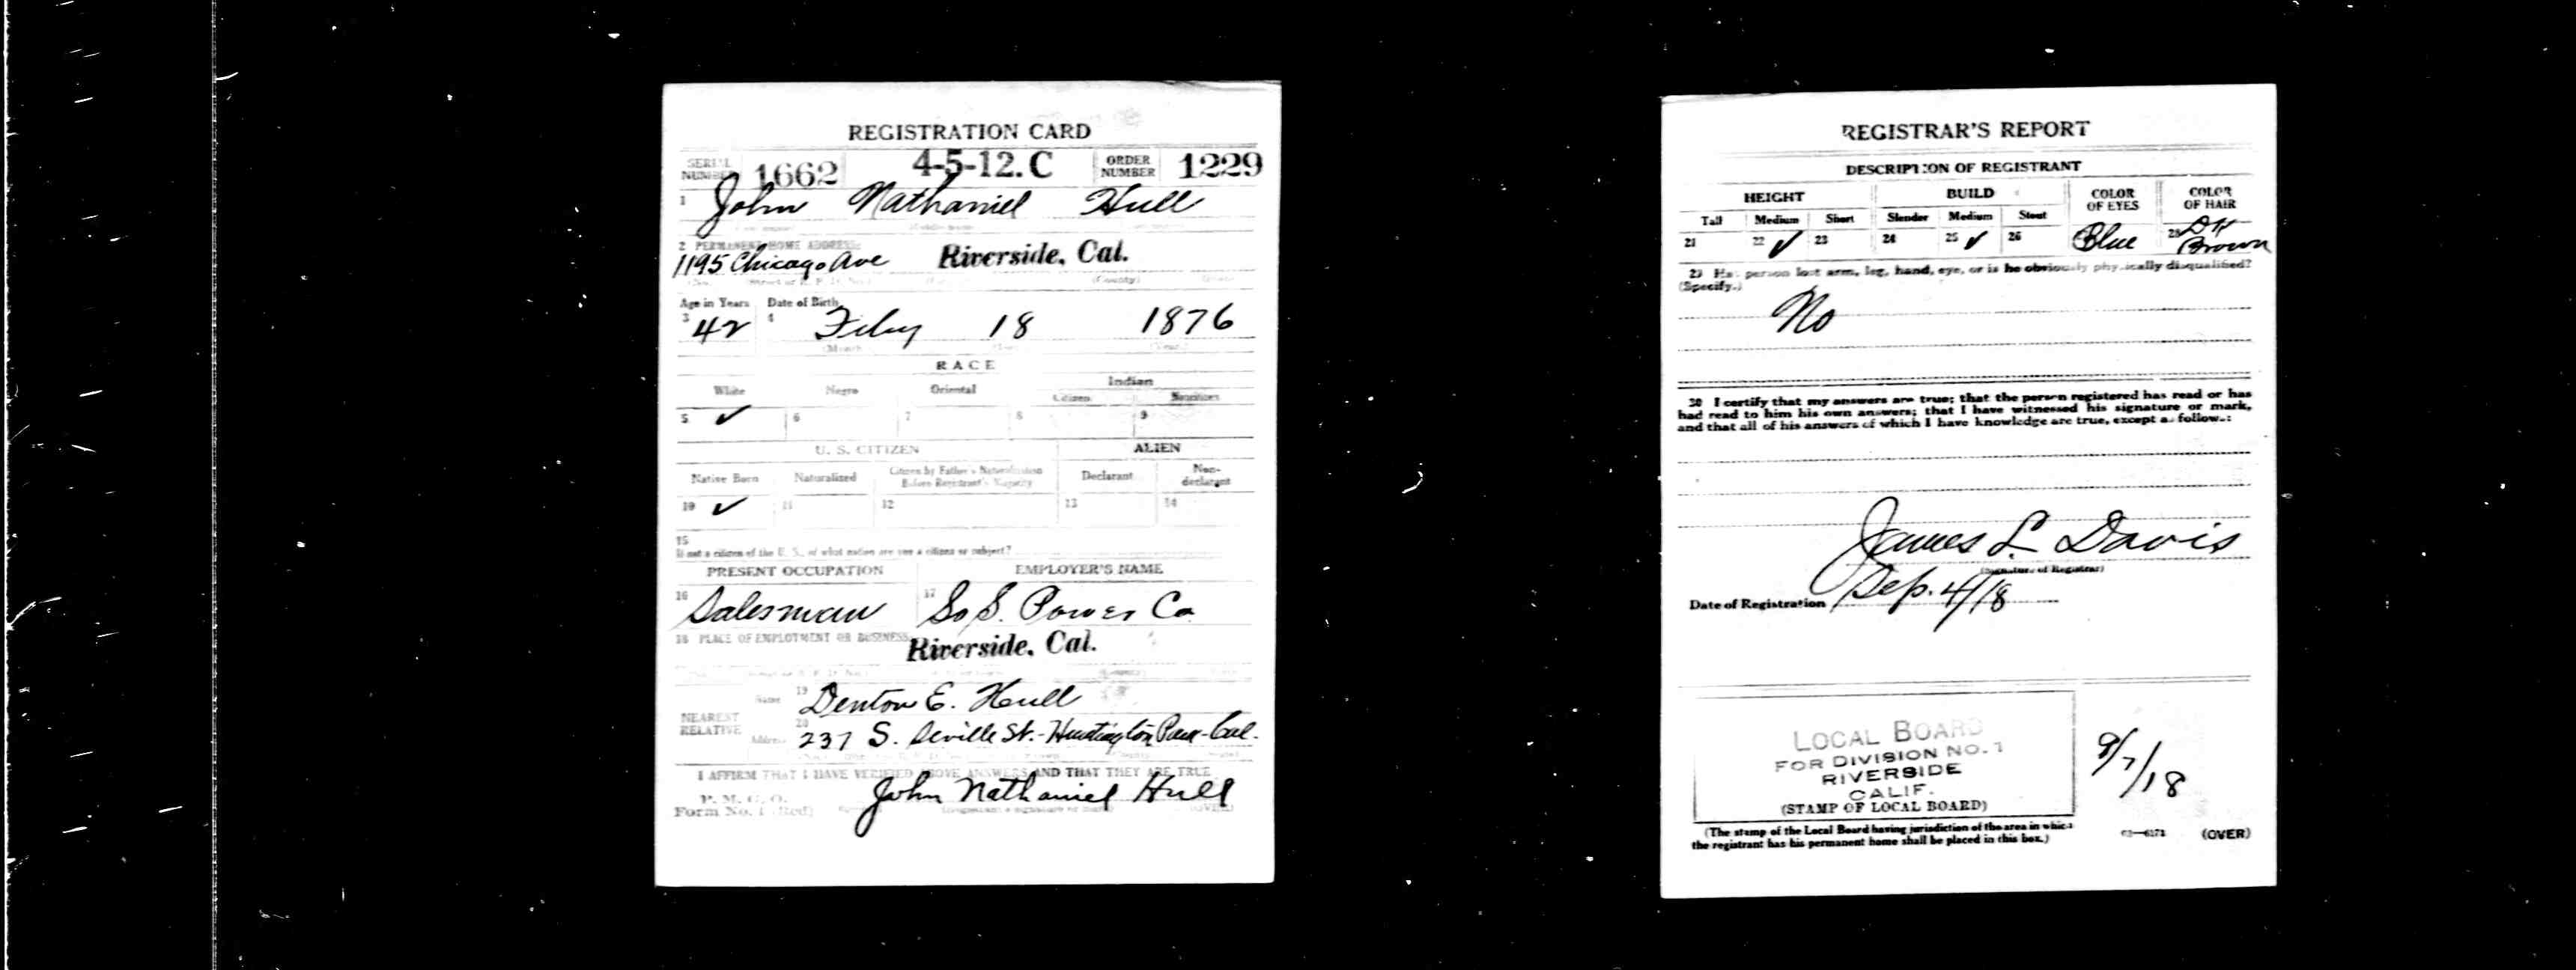 REGISTRATION CARD
SERIAL NUMBER 1662 4-5-12. C ORDER NUMBER 1229
1 John Nathaniel Hull
2 PERMANENT HOME ADDRESS:
1195 Chicago Ave Riverside, Cal.
(County)
Age in Years Date of Birth
3 42 4 Feby 18 1876
(Month) (Day) (Year)
RACE
White Negro Oriental Indian
Citizen Noncitizen
5 ✓ 6 7 8 9
U. S. CITIZEN ALIEN
Native Born Naturalized Citizen by Father's Naturalization Before Registrant's Majority Declarant Non-declarant
10 ✓ 11 12 13 14
15
If not a citizen of the U. S., of what nation are you a citizen or subject?
PRESENT OCCUPATION EMPLOYER'S NAME
16 Salesman 17 So S. Power Co
18 PLACE OF EMPLOYMENT OR BUSINESS:
Riverside, Cal.
NEAREST RELATIVE Name 19 Denton E. Hull
Address 20 237 S. Seville St.-Huntington Park-Cal.
I AFFIRM THAT I HAVE VERIFIED ABOVE ANSWERS AND THAT THEY ARE TRUE
P. M. G. O.
Form No. 1 (Red) John Nathaniel Hull
(OVER)
REGISTRAR'S REPORT
DESCRIPTION OF REGISTRANT
HEIGHT BUILD COLOR OF EYES COLOR OF HAIR
Tall Medium Short Slender Medium Stout
21 22 ✓ 23 24 25 ✓ 26 Blue 28 Dk Brown
29 Has person lost arm, leg, hand, eye, or is he obviously physically disqualified?
(Specify.)
No
30 I certify that my answers are true; that the person registered has read or has
had read to him his own answers; that I have witnessed his signature or mark,
and that all of his answers of which I have knowledge are true, except as follows:
James L. Davis
(Signature of Registrar)
Date of Registration Sep. 4/18
LOCAL BOARD
FOR DIVISION NO. 1
RIVERSIDE
CALIF.
(STAMP OF LOCAL BOARD)
9/7/18
(The stamp of the Local Board having jurisdiction of the area in which
the registrant has his permanent home shall be placed in this box.)
03—6171 (OVER)